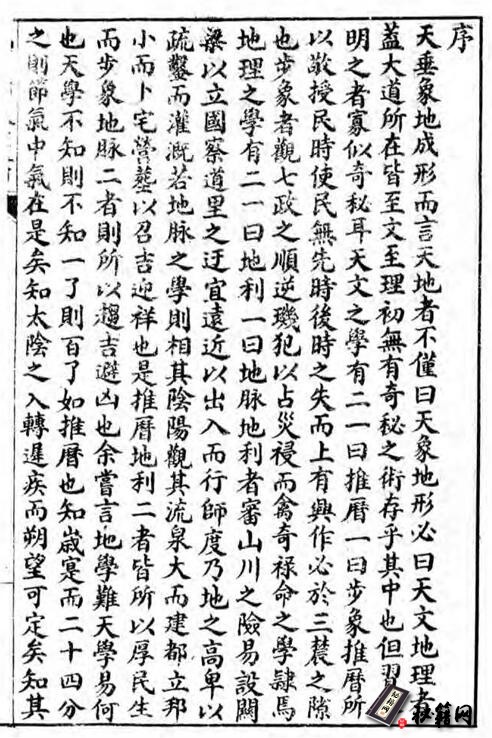 序
天垂象地成形而言天地者不僅曰天象地形必曰天文地理者
蓋大道所在皆至文至理初無有奇秘之術存乎其中也但習
明之者寡似奇秘耳天文之學有二一曰推曆一曰步象推曆所
以敬授民時使民無先時後時之失而上有興作必於三農之隙
也步象者觀七政之順逆璣犯以占災祲而禽奇祿命之學隸焉
地理之學有二一曰地利一曰地脉地利者審山川之險易設關
梁以立國察道里之迂宜遠近以出入而行師度乃地之高卑以
疏鑿而灌溉若地脉之學則相其陰陽觀其流泉大而建都立邦
小而卜宅營塟以召吉迎祥也是推曆地利二者皆所以厚民生
而步象地脉二者則所以趨吉避凶也余嘗言地學難天學易何
也天學不知則不知一了則百了如推曆也知歲寔而二十四分
之則節氣中氣在是矣知太陰之入轉遲疾而朔望可定矣知其
秘籍网